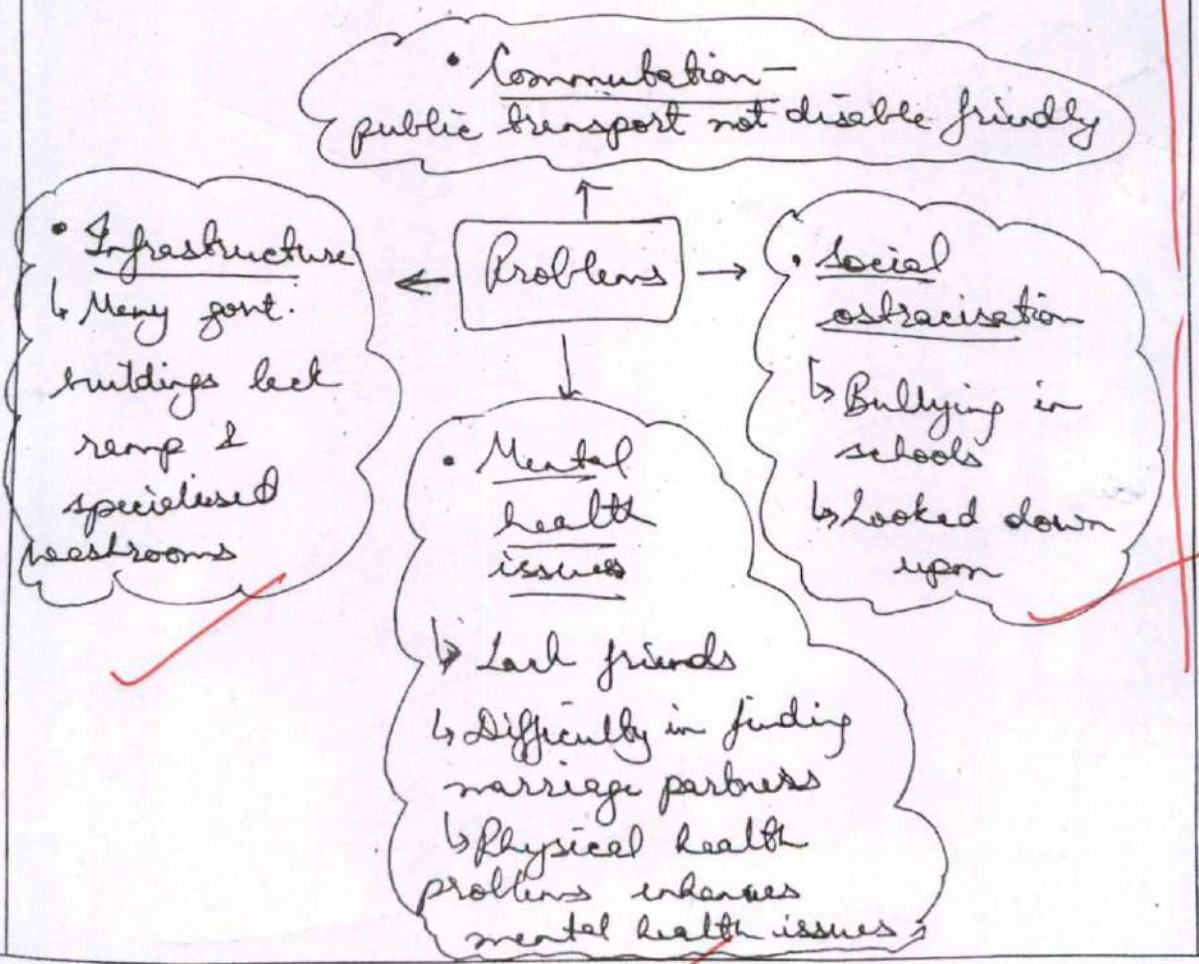 • Commutation –
public transport not disable friendly
Problems
• Infrastructure
↳ Many govt.
buildings lack
ramp &
specialised
washrooms
• Social
ostracisation
↳ Bullying in
schools
↳ Looked down
upon
• Mental
health
issues
↳ Lack friends
↳ Difficulty in finding
marriage partners
↳ Physical health
problems enhances
mental health issues